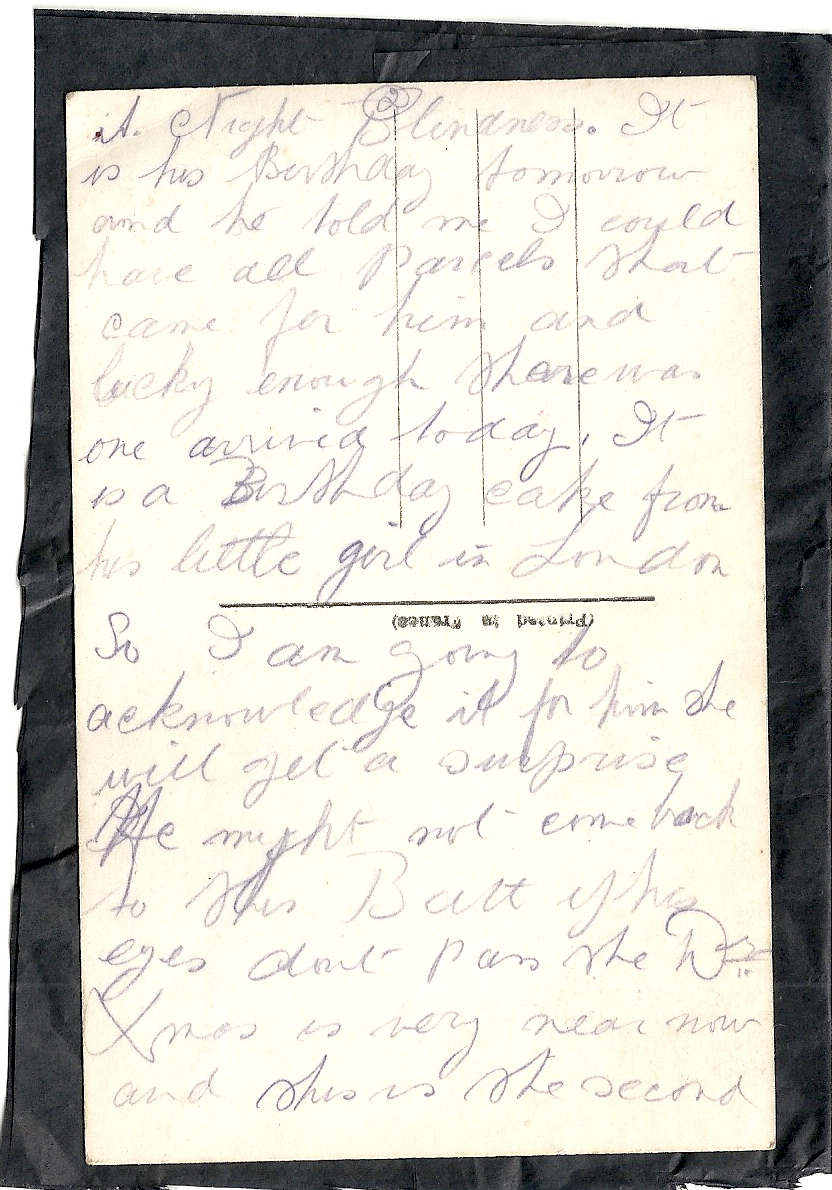 ②
it. Night Blindness. It
is his Birthday tomorrow
and he told me I could
have all Parcels that
came for him and
lucky enough there was
one arrived today. It
is a Birthday cake from
his little girl in London
(Printed in France)
So I am going to
acknowledge it for him she
will get a surprise
He might not come back
to this Batt if his
eyes dont pass the Dr
Xmas is very near now
and this is the second